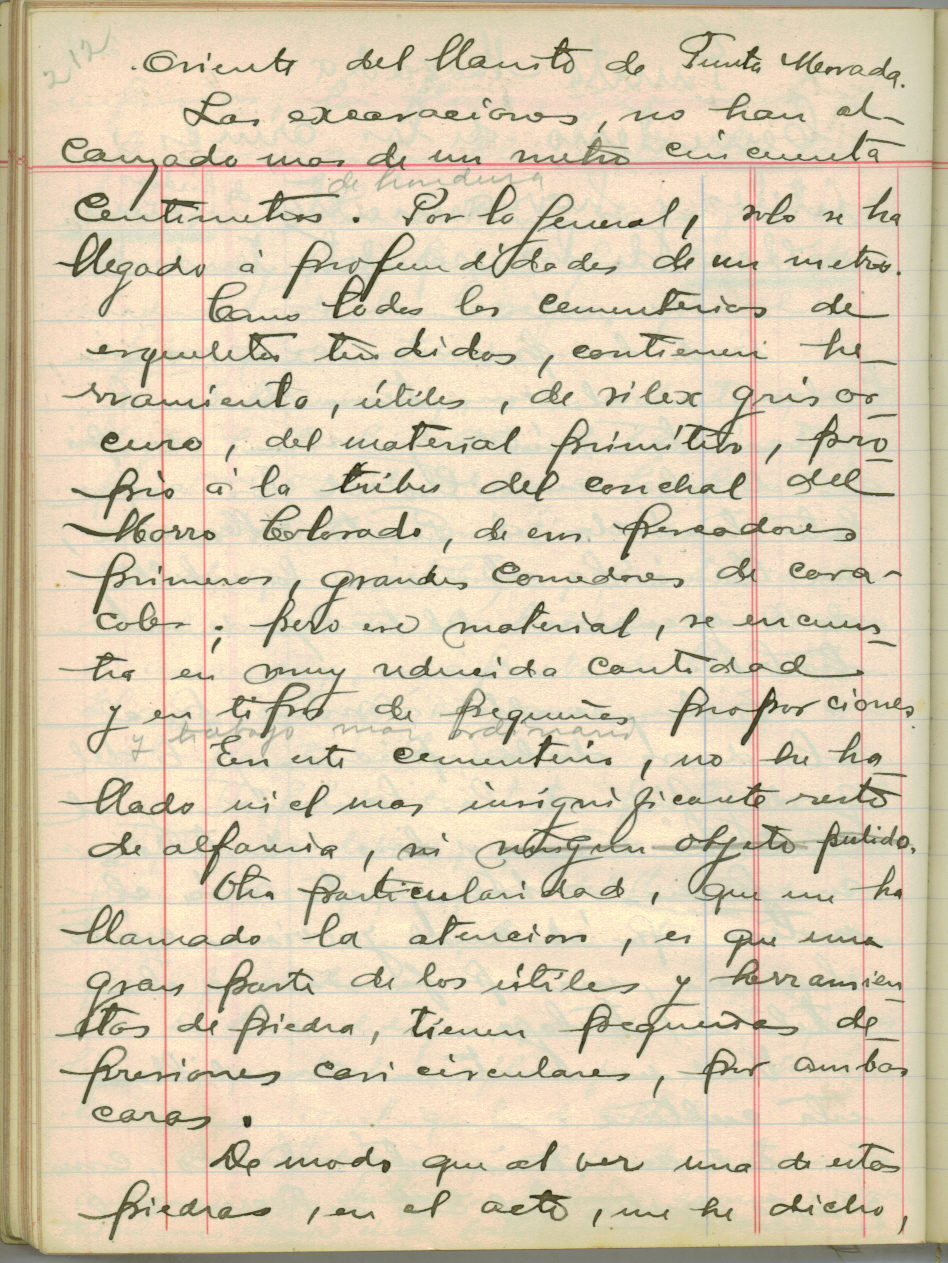 212.
Oriente del llanito de Punta Morada.
Las excavaciones, no han al-
canzado mas de un metro cincuenta
de hondura
centimetros. Por lo general, solo se ha
llegado à profundidades de un metro.
Como todos los cementerios de
esqueletos tendidos, contienen he-
rramienta, útiles, de silex gris os-
curo, del material primitivo, pro-
pio à la tribu del conchal del
Morro Colorado, de sus pescadores
primeros, grandes comedores de cara-
coles; pero ese material, se encuen-
tra en muy reducida cantidad
y en tipos de pequeñas proporciones
y trabajo mas ordinario
En este cementerio, no he ha
llado ni el mas insignificante resto
de alfareria, ni ningun objeto pulido.
Otra particularidad, que me ha
llamado la atencion, es que una
gran parte de los útiles y herramien-
tas de piedra, tienen pequeñas de-
presiones casi circulares, por ambas
caras.
De modo que al ver una de estas
piedras, en el acto, me he dicho,